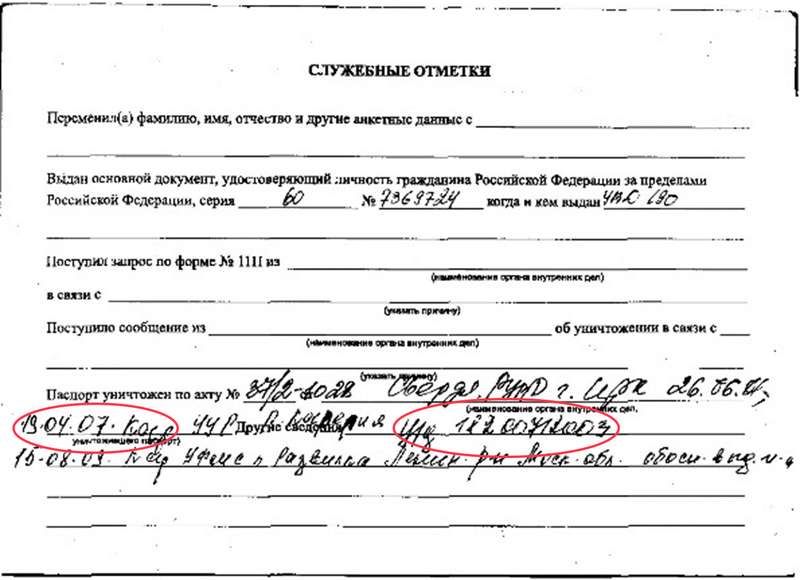 СЛУЖЕБНЫЕ ОТМЕТКИ
Переменил(а) фамилию, имя, отчество и другие анкетные данные с
Выдан основной документ, удостоверяющий личность гражданина Российской Федерации за пределами
Российской Федерации, серия 60 № 7369724 когда и кем выдан УВД 190
Поступил запрос по форме № 11П из
(наименование органа внутренних дел)
в связи с
(указать причину)
Поступило сообщение из об уничтожении в связи с
(наименование органа внутренних дел)
(указать причину)
Паспорт уничтожен по акту № 37/2-1028 Свердл. РУВД г. Ирк 26.06.
(наименование органа внутренних дел,
19.04.07. Другие сведения 18200712003
уничтожившего паспорт)
15.08.09. УФМС п Развилка Ленин. р-н Моск. обл.